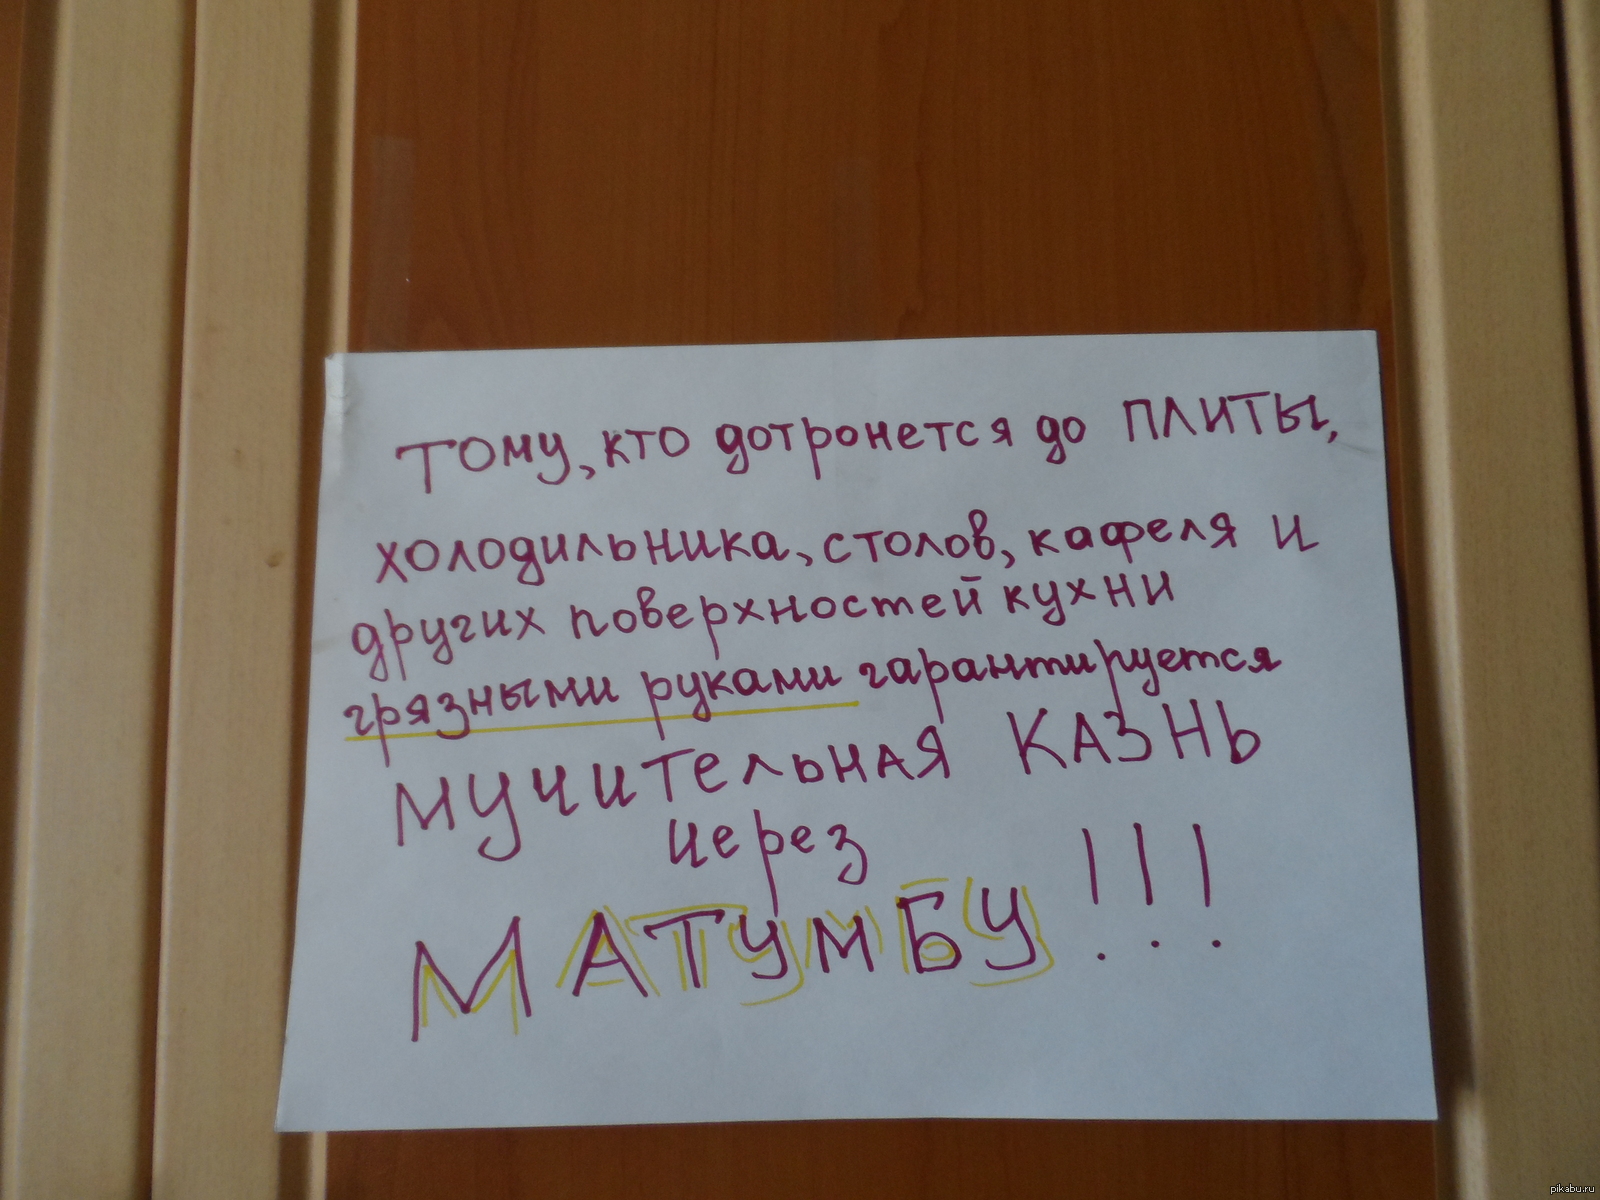 Тому, кто дотронется до ПЛИТЫ,
холодильника, столов, кафеля и
других поверхностей кухни
грязными руками гарантируется
МУЧИТЕЛЬНАЯ КАЗНЬ
через
МАТУМБУ!!!
pikabu.ru